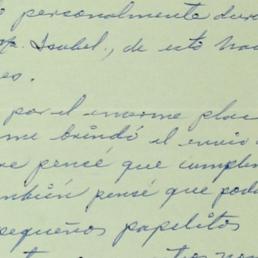 personalmente dura
op. Isabel, de esto hac
es.
por el enorme plac
me brindó el envío
re pensé que cumplim
también pensé que pod
pequeños papelitos